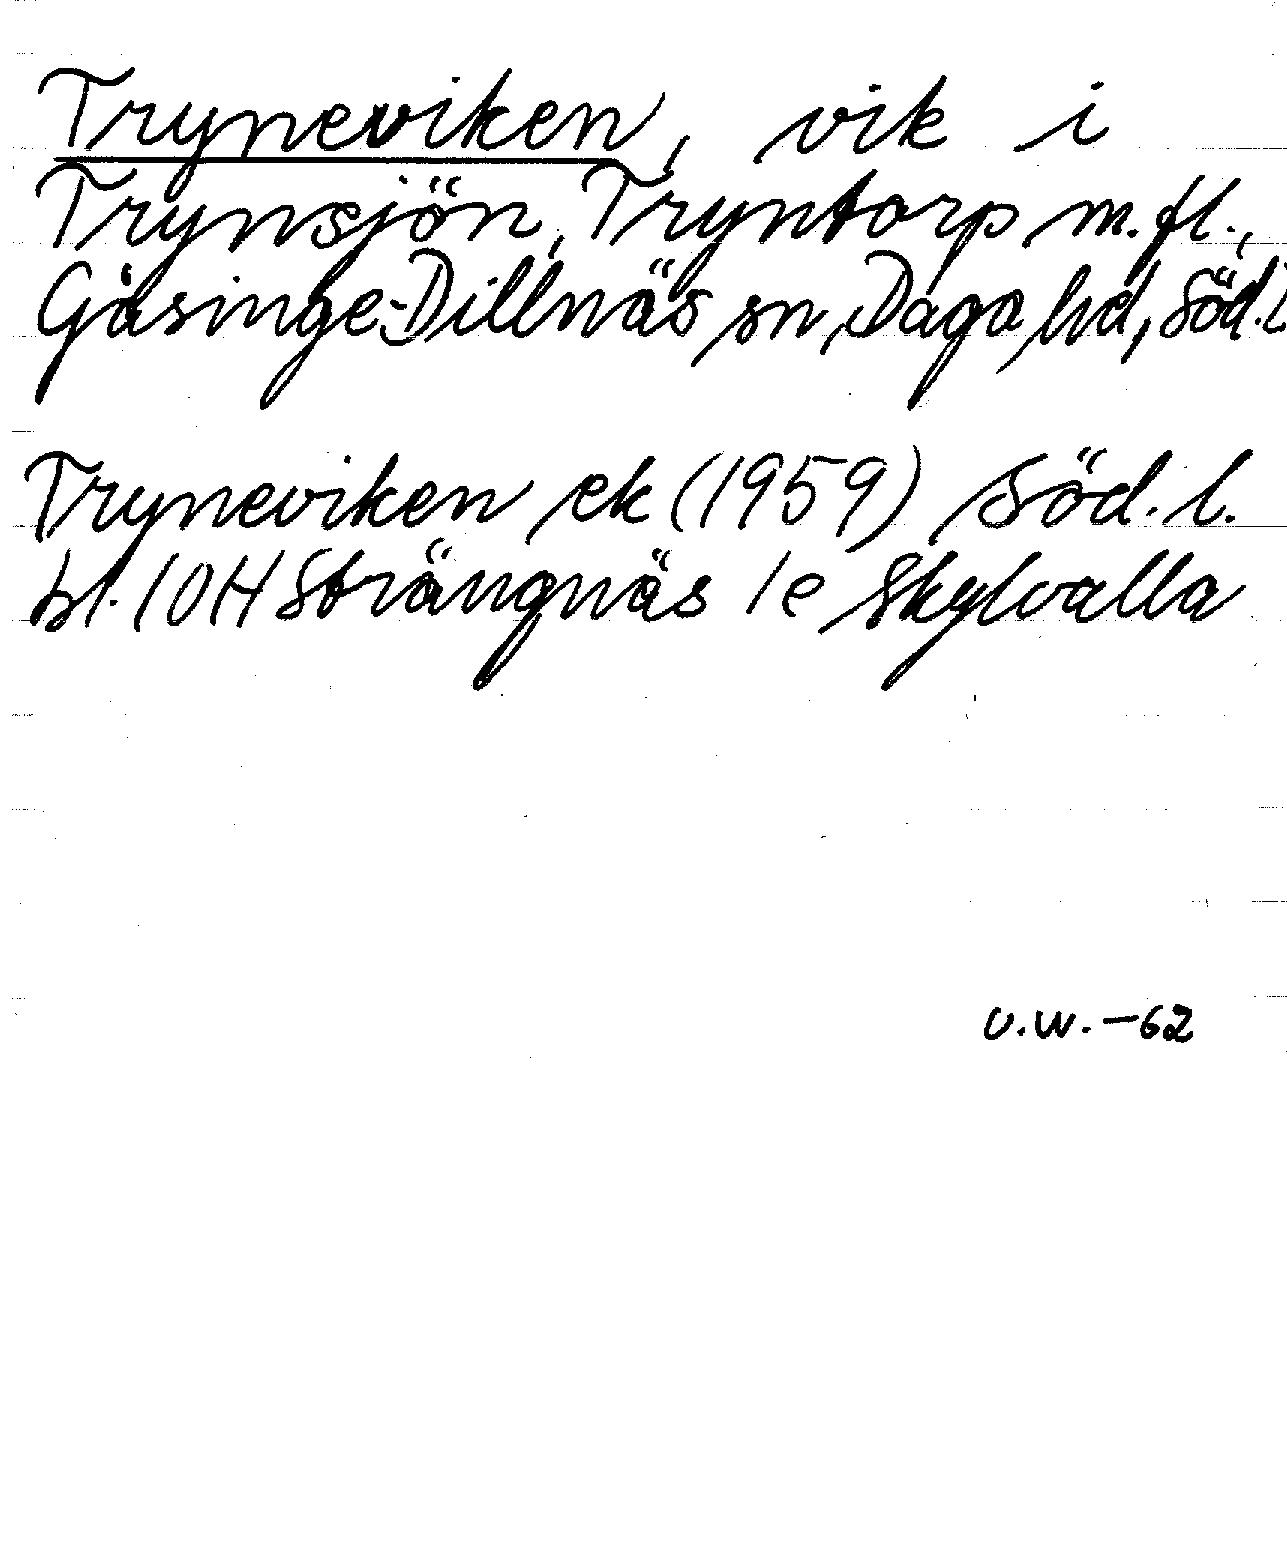 Tryneviken, vik i
Trynsjön, Tryntorp m.fl.,
Gåsinge-Dillnäs sn, Daga hd, Söd.l
Tryneviken ek (1959) Söd. l.
bl. 10H Strängnäs 1e Skylvalla
U.W. -62